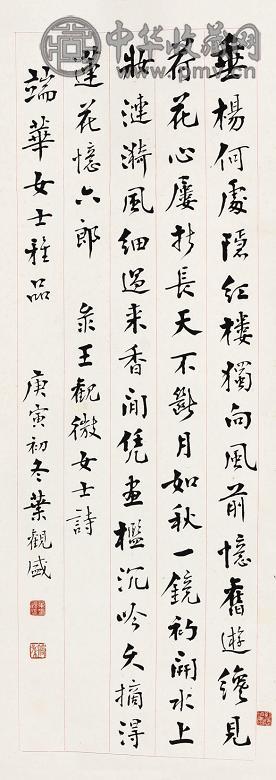 垂楊何處隱紅樓獨向風前憶舊遊纔見
荷花心屢折長天不斷月如秋一鏡初開水上
妝漣漪風細過來香閒凭畫檻沉吟久摘得
蓮花憶六郎 录王觀微女士詩
端華女士雅品 庚寅初冬葉觀盛
中华收藏网